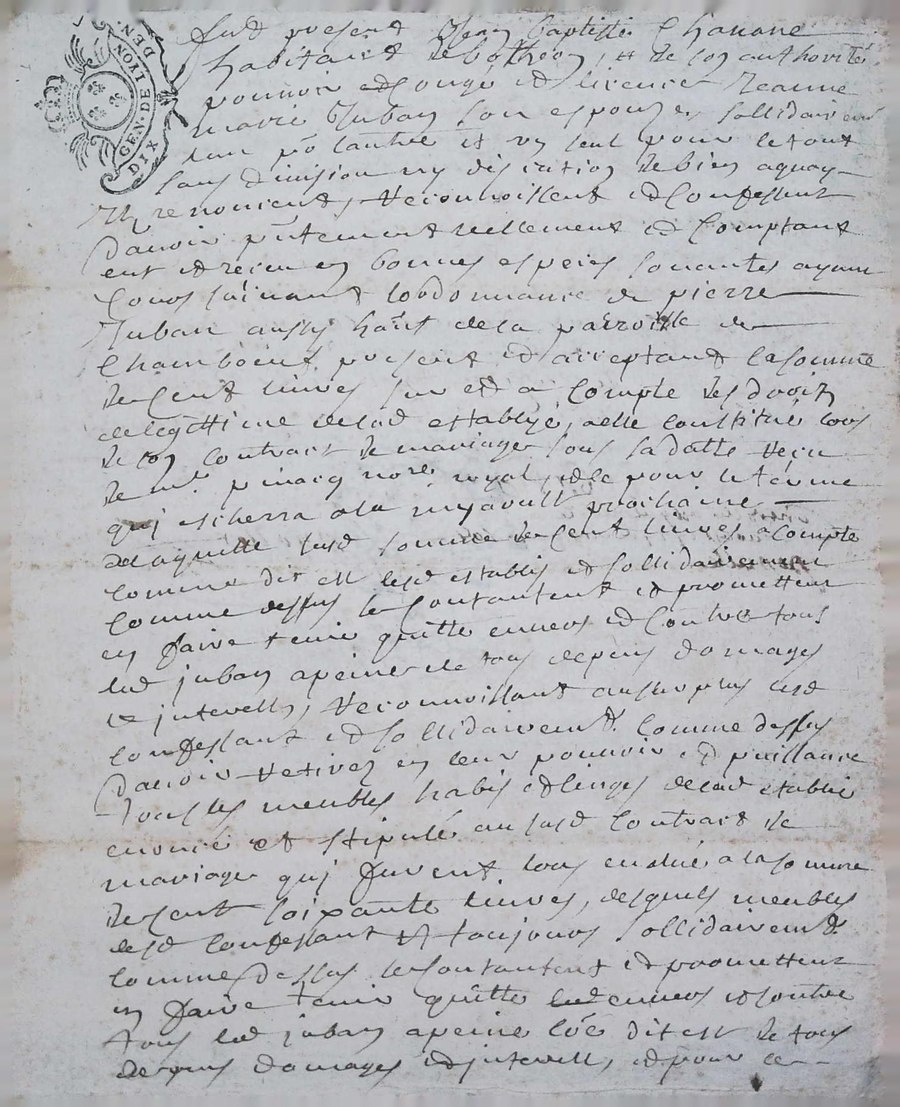 GEN. DE LION
DIX DEN
fut present Jean Baptiste Chanone
habitant de botheon, et de son authorité
pouvoir congé et licence Jeanne
marie Juban son espouze sollidairem
lun pr lautre et un seul pour le tout
sans division ny discution de bien aquoy
Ils renoncent, reconnoissent et confessent
davoir pntement reellement et comptant
eut et receu en bonnes especes sonantes ayant
cours suivant lordonnance de pierre
Juban aussy hant de la parroisse de
Chambœuf present et acceptant la somme
de cent livres sur et a compte des droitz
de legittime de lad establie, a elle constitué lors
de son contract de mariage sous sa datte receu
de me pinacq nore royal, et ce pour le terme
quj escherra a la myaoust prochaine
de laquelle susd somme de cent livres a compte
comme dit est lesd establis et sollidairement
comme dessus se contantent et promettent
en faire tenir quitte envers et contre tous
led juban a peine de tous depens domages
et interests, reconnoissant aussy plus lesd
confessant et sollidairement comme dessus
davoir retirez en leur pouvoir et puissance
tous les meubles habis et linges de lad establie
enoncé et stipulé au susd contract de
mariage quj furent lors evalué a la somme
de cent soixante livres, desquels meubles
lesd confessant et toujours sollidairement
comme dessus se contantent et promettent
en faire tenir quitte envers et contre
tous led juban a peine côe dit est de tous
depens domages et interests, et pour ce